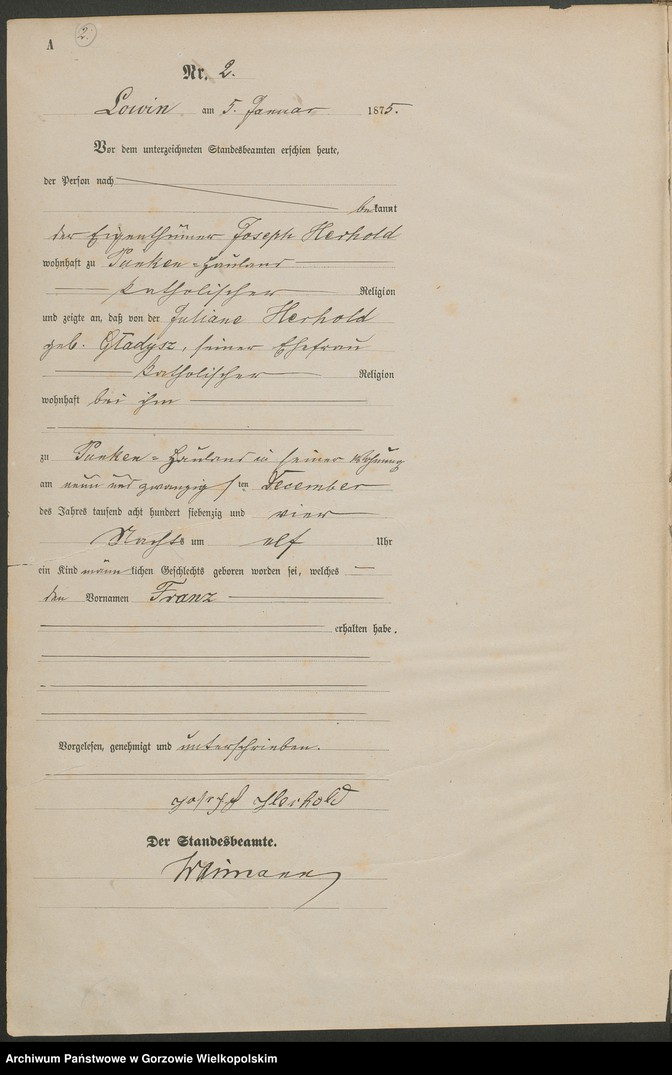 A
2.
Nr. 2.
Lowin am 5. Januar 1875.
Vor dem unterzeichneten Standesbeamten erschien heute,
der Person nach
bekannt
der Eigenthümer Joseph Herhold
wohnhaft zu Hauland
katholischer Religion
und zeigte an, daß von der Juliane Herhold
geb. Gładysz, seiner Ehefrau
katholischer Religion
wohnhaft bei ihm
zu Hauland in seiner Wohnung
am neun und zwanzigsten December
des Jahres tausend acht hundert siebenzig und vier
Nachts um elf Uhr
ein Kind männlichen Geschlechts geboren worden sei, welches
den Vornamen Franz
erhalten habe.
Vorgelesen, genehmigt und unterschrieben.
Joseph Herhold
Der Standesbeamte.
Archiwum Państwowe w Gorzowie Wielkopolskim